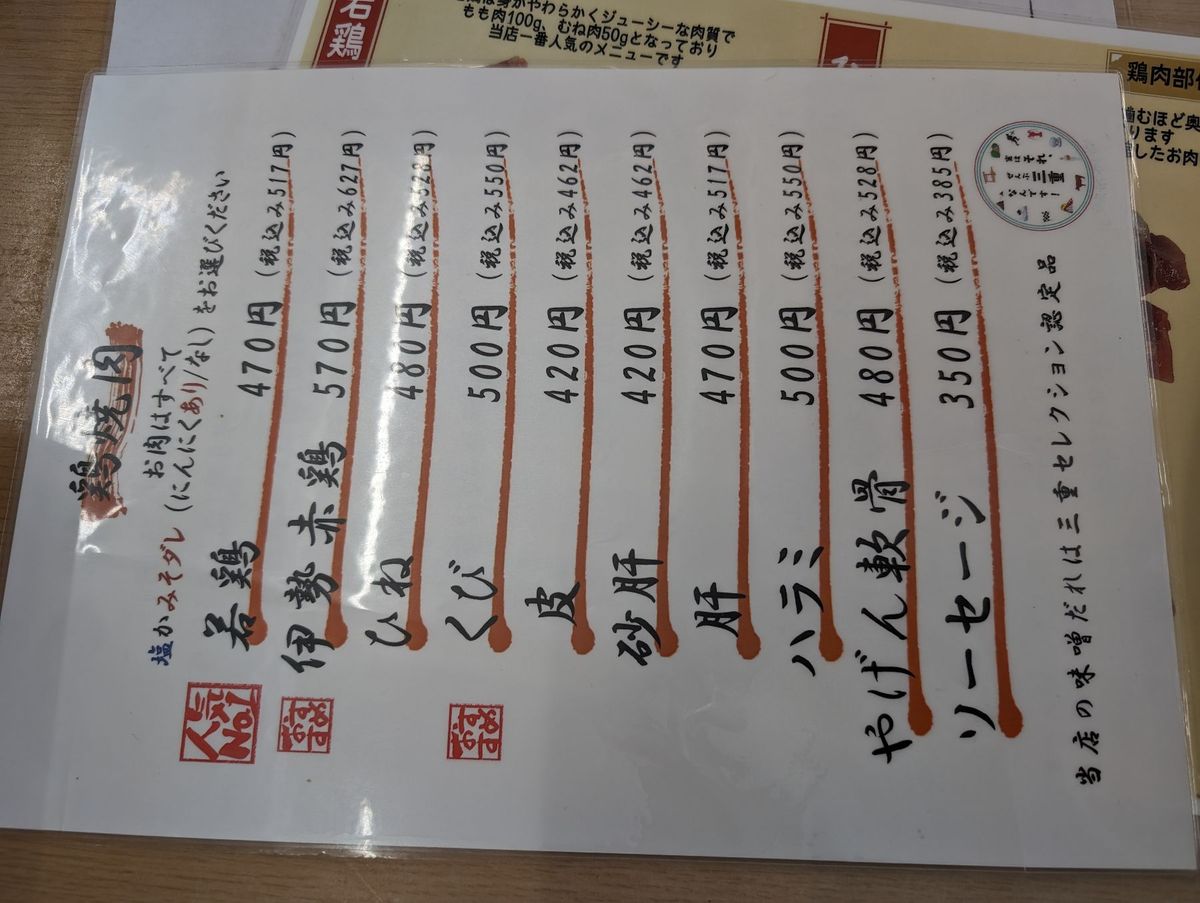 鶏焼肉
お肉はすべて
塩かみそダレ（にんにくあり/なし）をお選びください
人気No.1
若鶏 470円（税込み517円）
おすすめです
伊勢赤鶏 570円（税込み627円）
ひね 480円（税込み528円）
おすすめです
くび 500円（税込み550円）
皮 420円（税込み462円）
砂肝 420円（税込み462円）
肝 470円（税込み517円）
ハラミ 500円（税込み550円）
やげん軟骨 480円（税込み528円）
ソーセージ 350円（税込み385円）
当店の味噌だれは三重セレクション認定品
実はそれ、
ぜんぶ三重
なんです！
若鶏
身がやわらかくジューシーな肉質で
もも肉100g、むね肉50gとなっており
当店一番人気のメニューです
ひ
鶏肉部
噛むほど奥
ります
したお肉